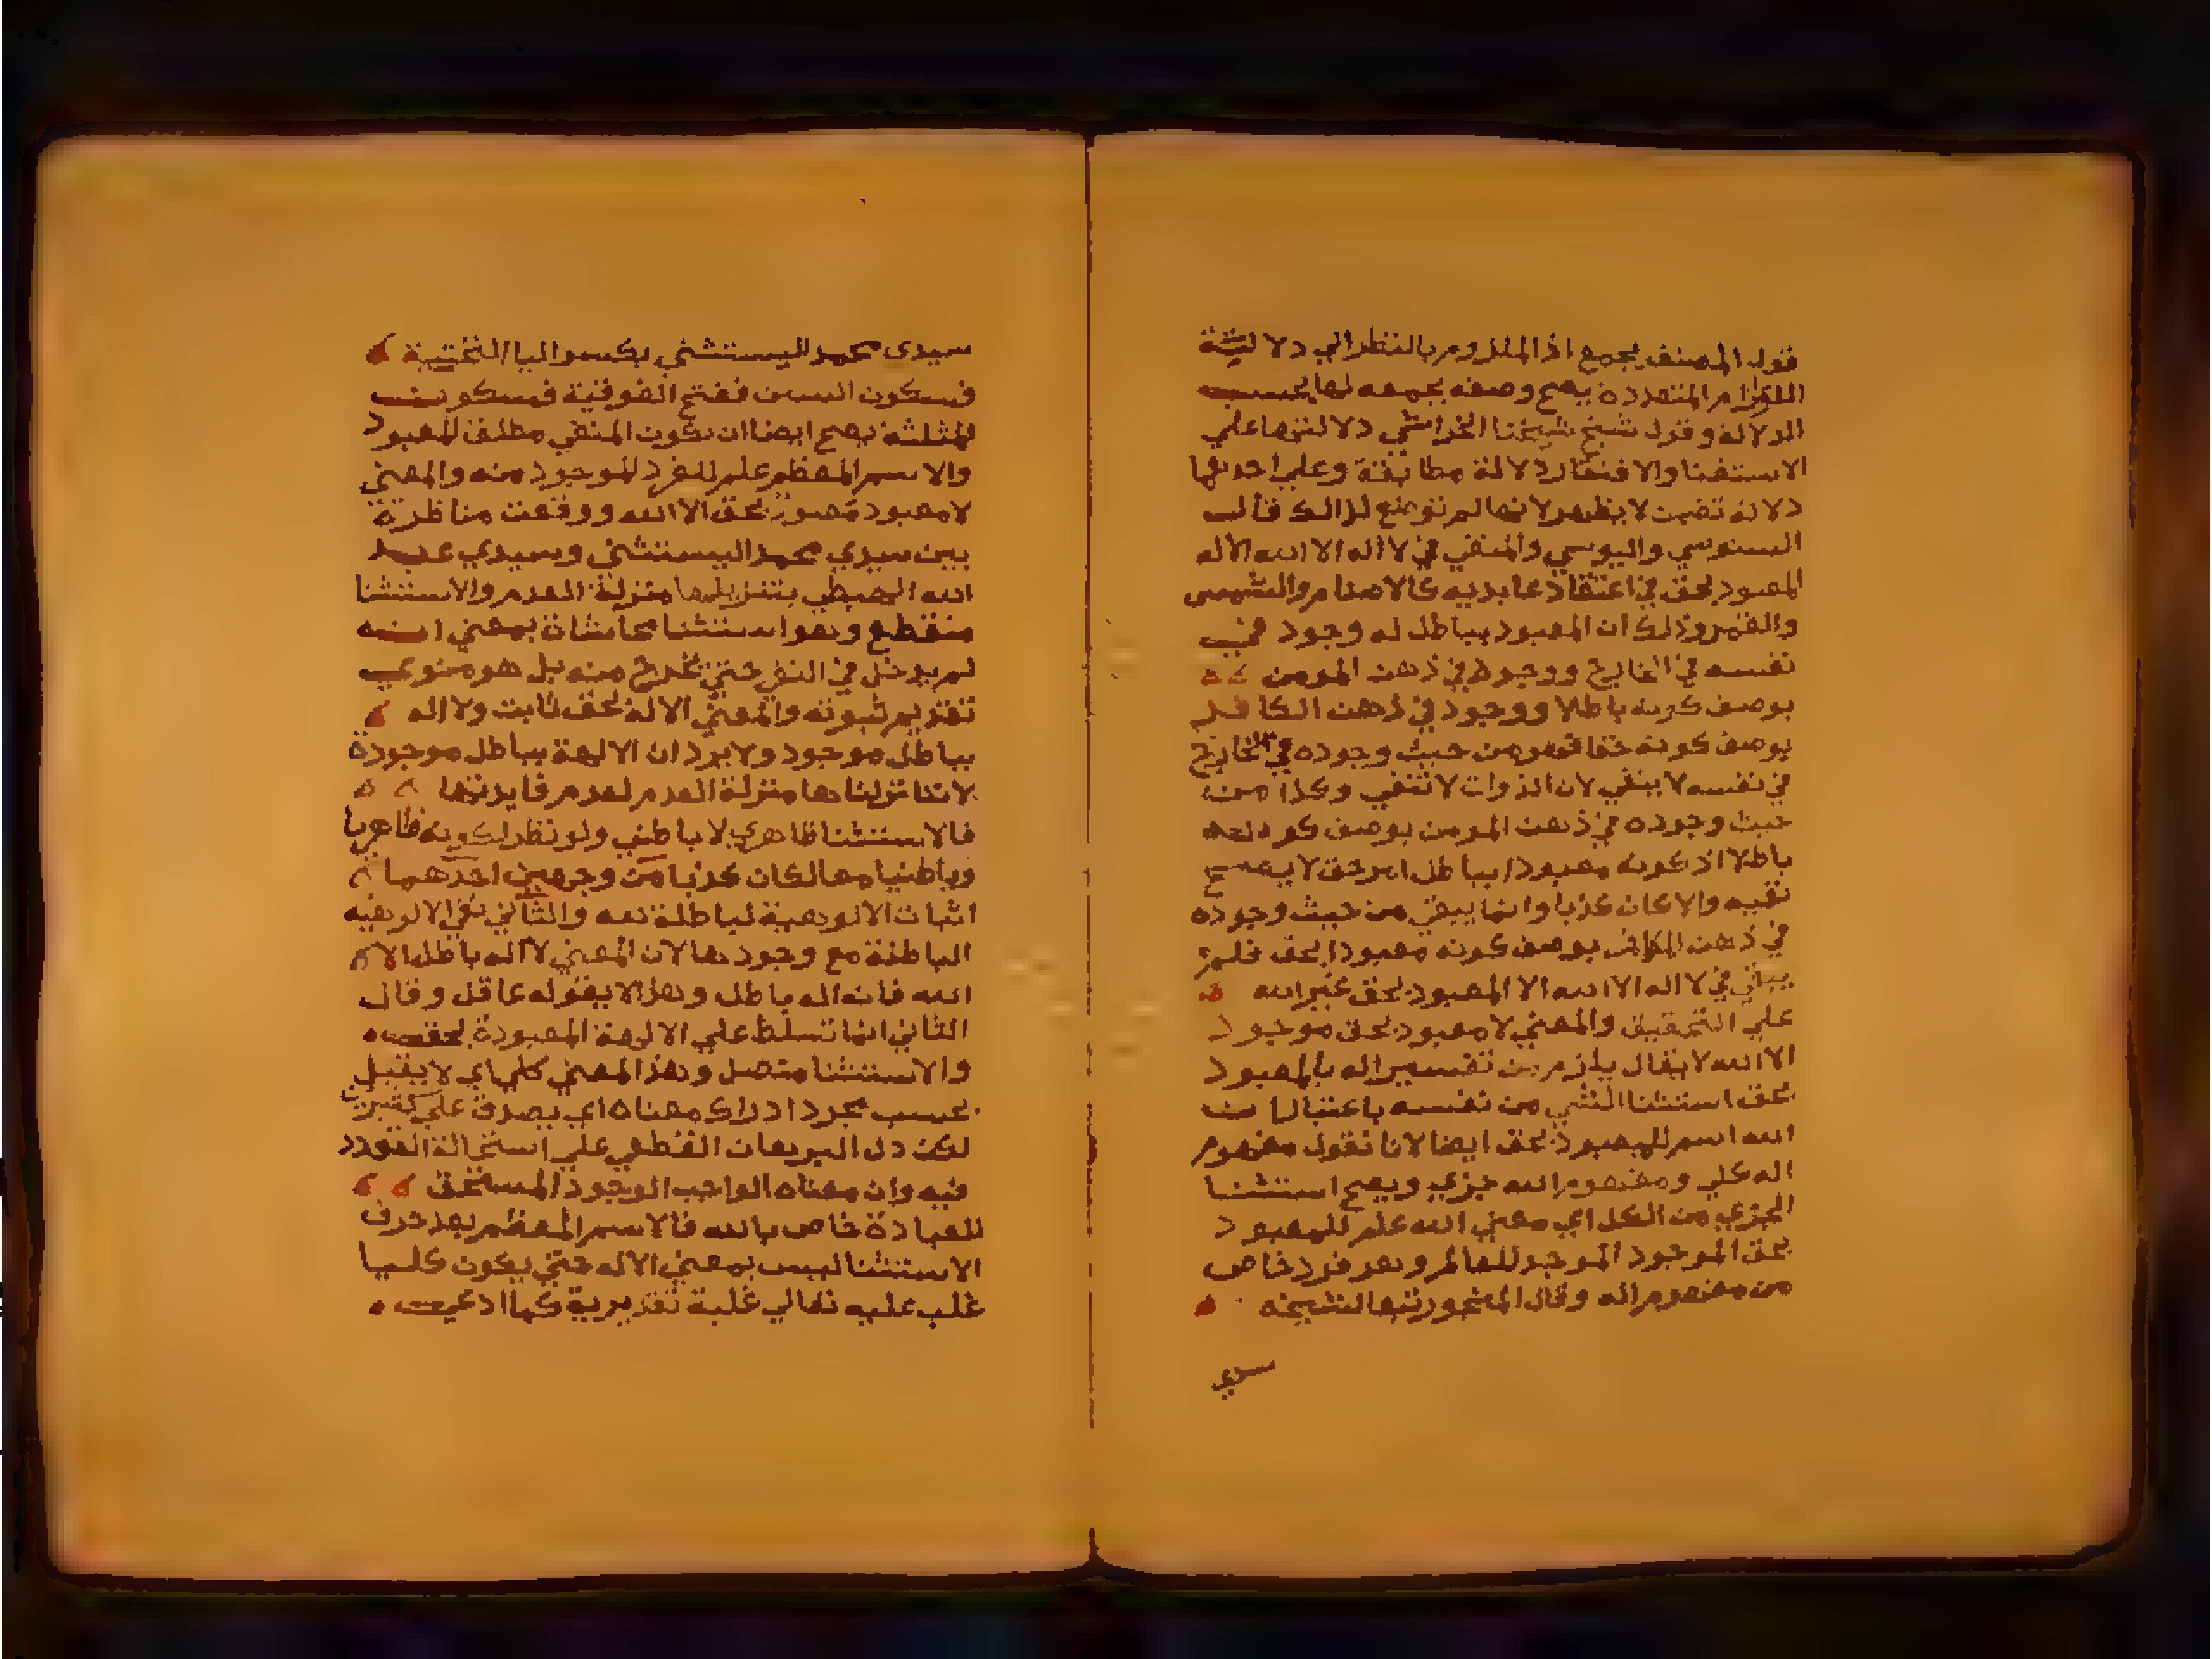 قول المصنف يجمع اذ الملزوم بالنظر الي دلالته
اللوازم المتعددة يصح وصفه بجمعه لها بحسب
الدلالة وقول شيخ شيخنا الخراشي دلالتها علي
الاستغنا والافتقار دلالة مطابقة وعلي احدها
دلالة تضمن لا يظهر لانها لم توضع لذالك قال
السنوسي واليوسي والمنفي في لا اله الا الله الاله
المعبود بحق في اعتقاد عابديه كالاصنام والشمس
والقمر وذلك ان المعبود بباطل له وجود في
نفسه في الخارج ووجود في ذهن المومن
بوصف كونه باطلا ووجود في ذهن الكافر
بوصف كونه حقا فهو من حيث وجوده في الخارج
في نفسه لا ينفي لان الذوات لا تنفي وكذا من
حيث وجوده في ذهن المومن بوصف كونه
باطلا اذ كونه معبودا بباطل امر حق لا يصح
نفيه والا كان كذبا وانما ينفي من حيث وجوده
في ذهن الكافر بوصف كونه معبودا بحق فلم
ينفي في لا اله الا الله الا المعبود بحق غير الله
علي التحقيق والمعني لا معبود بحق موجود
الا الله لا يقال يلزم من تفسير اله بالمعبود
بحق استثنا الشي من نفسه باعتبار ان
الله اسم للمعبود بحق ايضا لانا نقول مفهوم
اله كلي ومفهوم الله جزي ويصح استثنا
الجزي من الكل اي معني الله علم للمعبود
بحق الموجود الموجد للعالم وهو فرد خاص
من مفهوم اله وقال المنجور تبعا لشيخه
سيدي
سيدي محمد اليستثني بكسر اليا التحتية
فسكون السين ففتح الفوقية فسكون
المثلثه يصح ايضا ان يكون المنفي مطلق المعبود
والاسم المعظم علم للفرد الموجود منه والمعني
لا معبود بحق الا الله ووقعت مناظرة
بين سيدي محمد اليستثني وسيدي عبد
الله الهبطي بتنزيلها منزلة العدم والاستثنا
منقطع وهو استثنا محاشاة بمعني انه
لم يدخل في النفي حتي يخرج منه بل هو منوي
تقديم ثبوته والمعني الاله بحق ثابت ولا اله
بباطل موجود ولا يرد ان الالهة بباطل موجودة
لاننا نزلناها منزلة العدم لعدم فايدتها
فالاستثنا ظاهري لا باطني ولو نظر لكونه ظاهريا
وباطنيا معا لكان كذبا من وجهين احدهما
اثبات الالوهية لباطلة لله والثاني نفي الالوهية
الباطلة مع وجودها لان المعني لا اله باطل الا
الله فانه اله باطل وهذا لا يقوله عاقل وقال
الثاني انما تسلط علي الالهة المعبودة بحق
والاستثنا متصل وهذا المعني كلي اي لا يقبل
بحسب مجرد ادراك معناه اي يصدق علي كثيرين
لكن دل البرهان القطعي علي استحالة التعدد
فيه وان معناه الواجب الوجود المستحق
للعبادة خاص بالله فالاسم المعظم بعد حرف
الاستثنا ليس بمعني الاله حتي يكون كليا
غلب عليه تعالي غلبة تقديرية كما ادعي